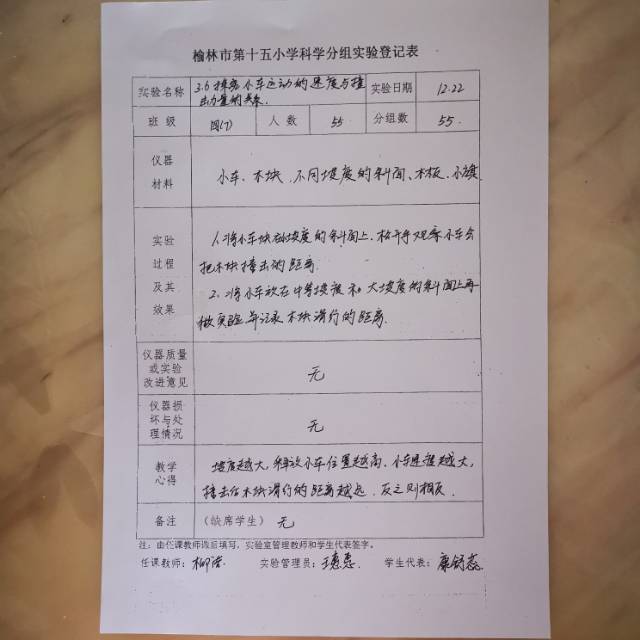 榆林市第十五小学科学分组实验登记表
实验名称 3.6探究小车运动的速度与撞
击力量的关系. 实验日期 12.22
班 级 四(7) 人 数 55 分组数 55.
仪器
材料 小车、木块、不同坡度的斜面、木板、小旗
实验
过程
及其
效果
1、将小车放在坡度的斜面上、松开手观察小车会
把木块撞击的距离.
2、将小车放在中等坡度和大坡度的斜面上再
做实验并记录木块滑行的距离.
仪器质量
或实验
改进意见 无
仪器损
坏与处
理情况 无
教学
心得
坡度越大,释放小车位置越高、小车速度越大,
撞击后木块滑行的距离越远.反之则相反.
备注 (缺席学生) 无
注:由任课教师课后填写,实验室管理教师和学生代表签字。
任课教师: 实验管理员: 学生代表: